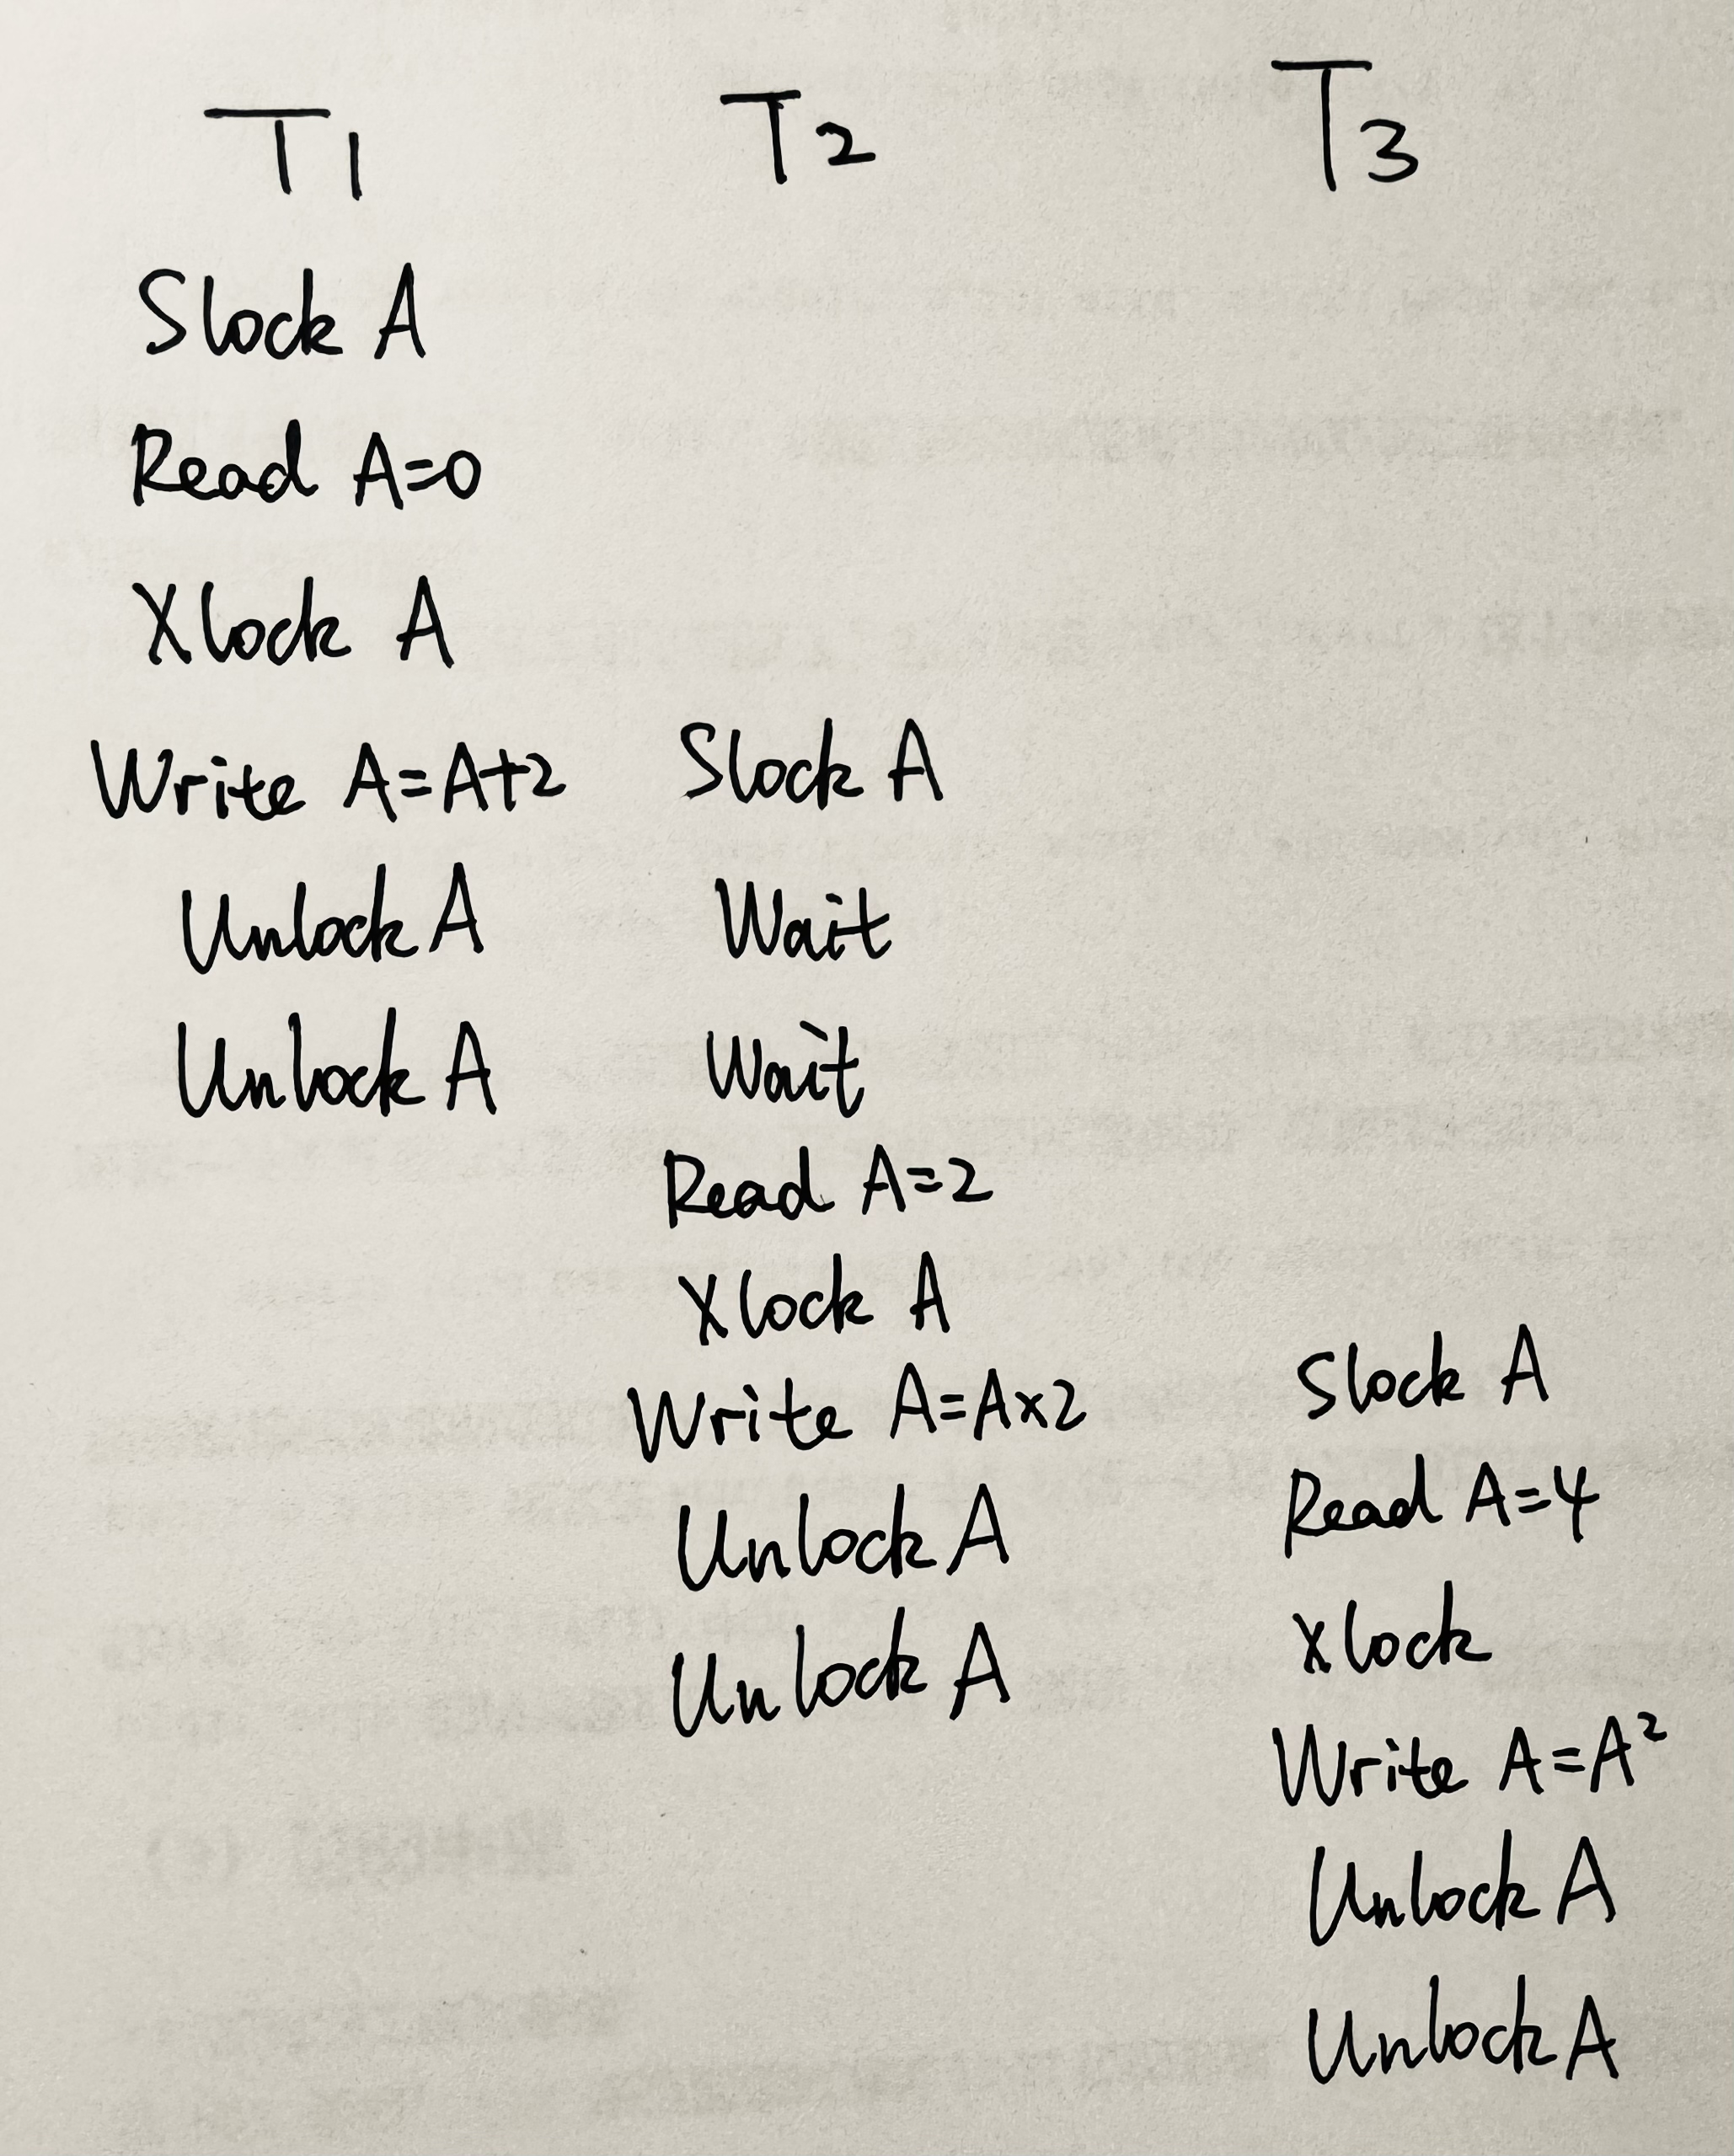 T1 T2 T3
Slock A
Read A=0
Xlock A
Write A=A+2 Slock A
Unlock A Wait
Unlock A Wait
Read A=2
Xlock A
Slock A
Write A=A×2
Read A=4
Unlock A
Xlock
Unlock A
Write A=A²
Unlock A
Unlock A